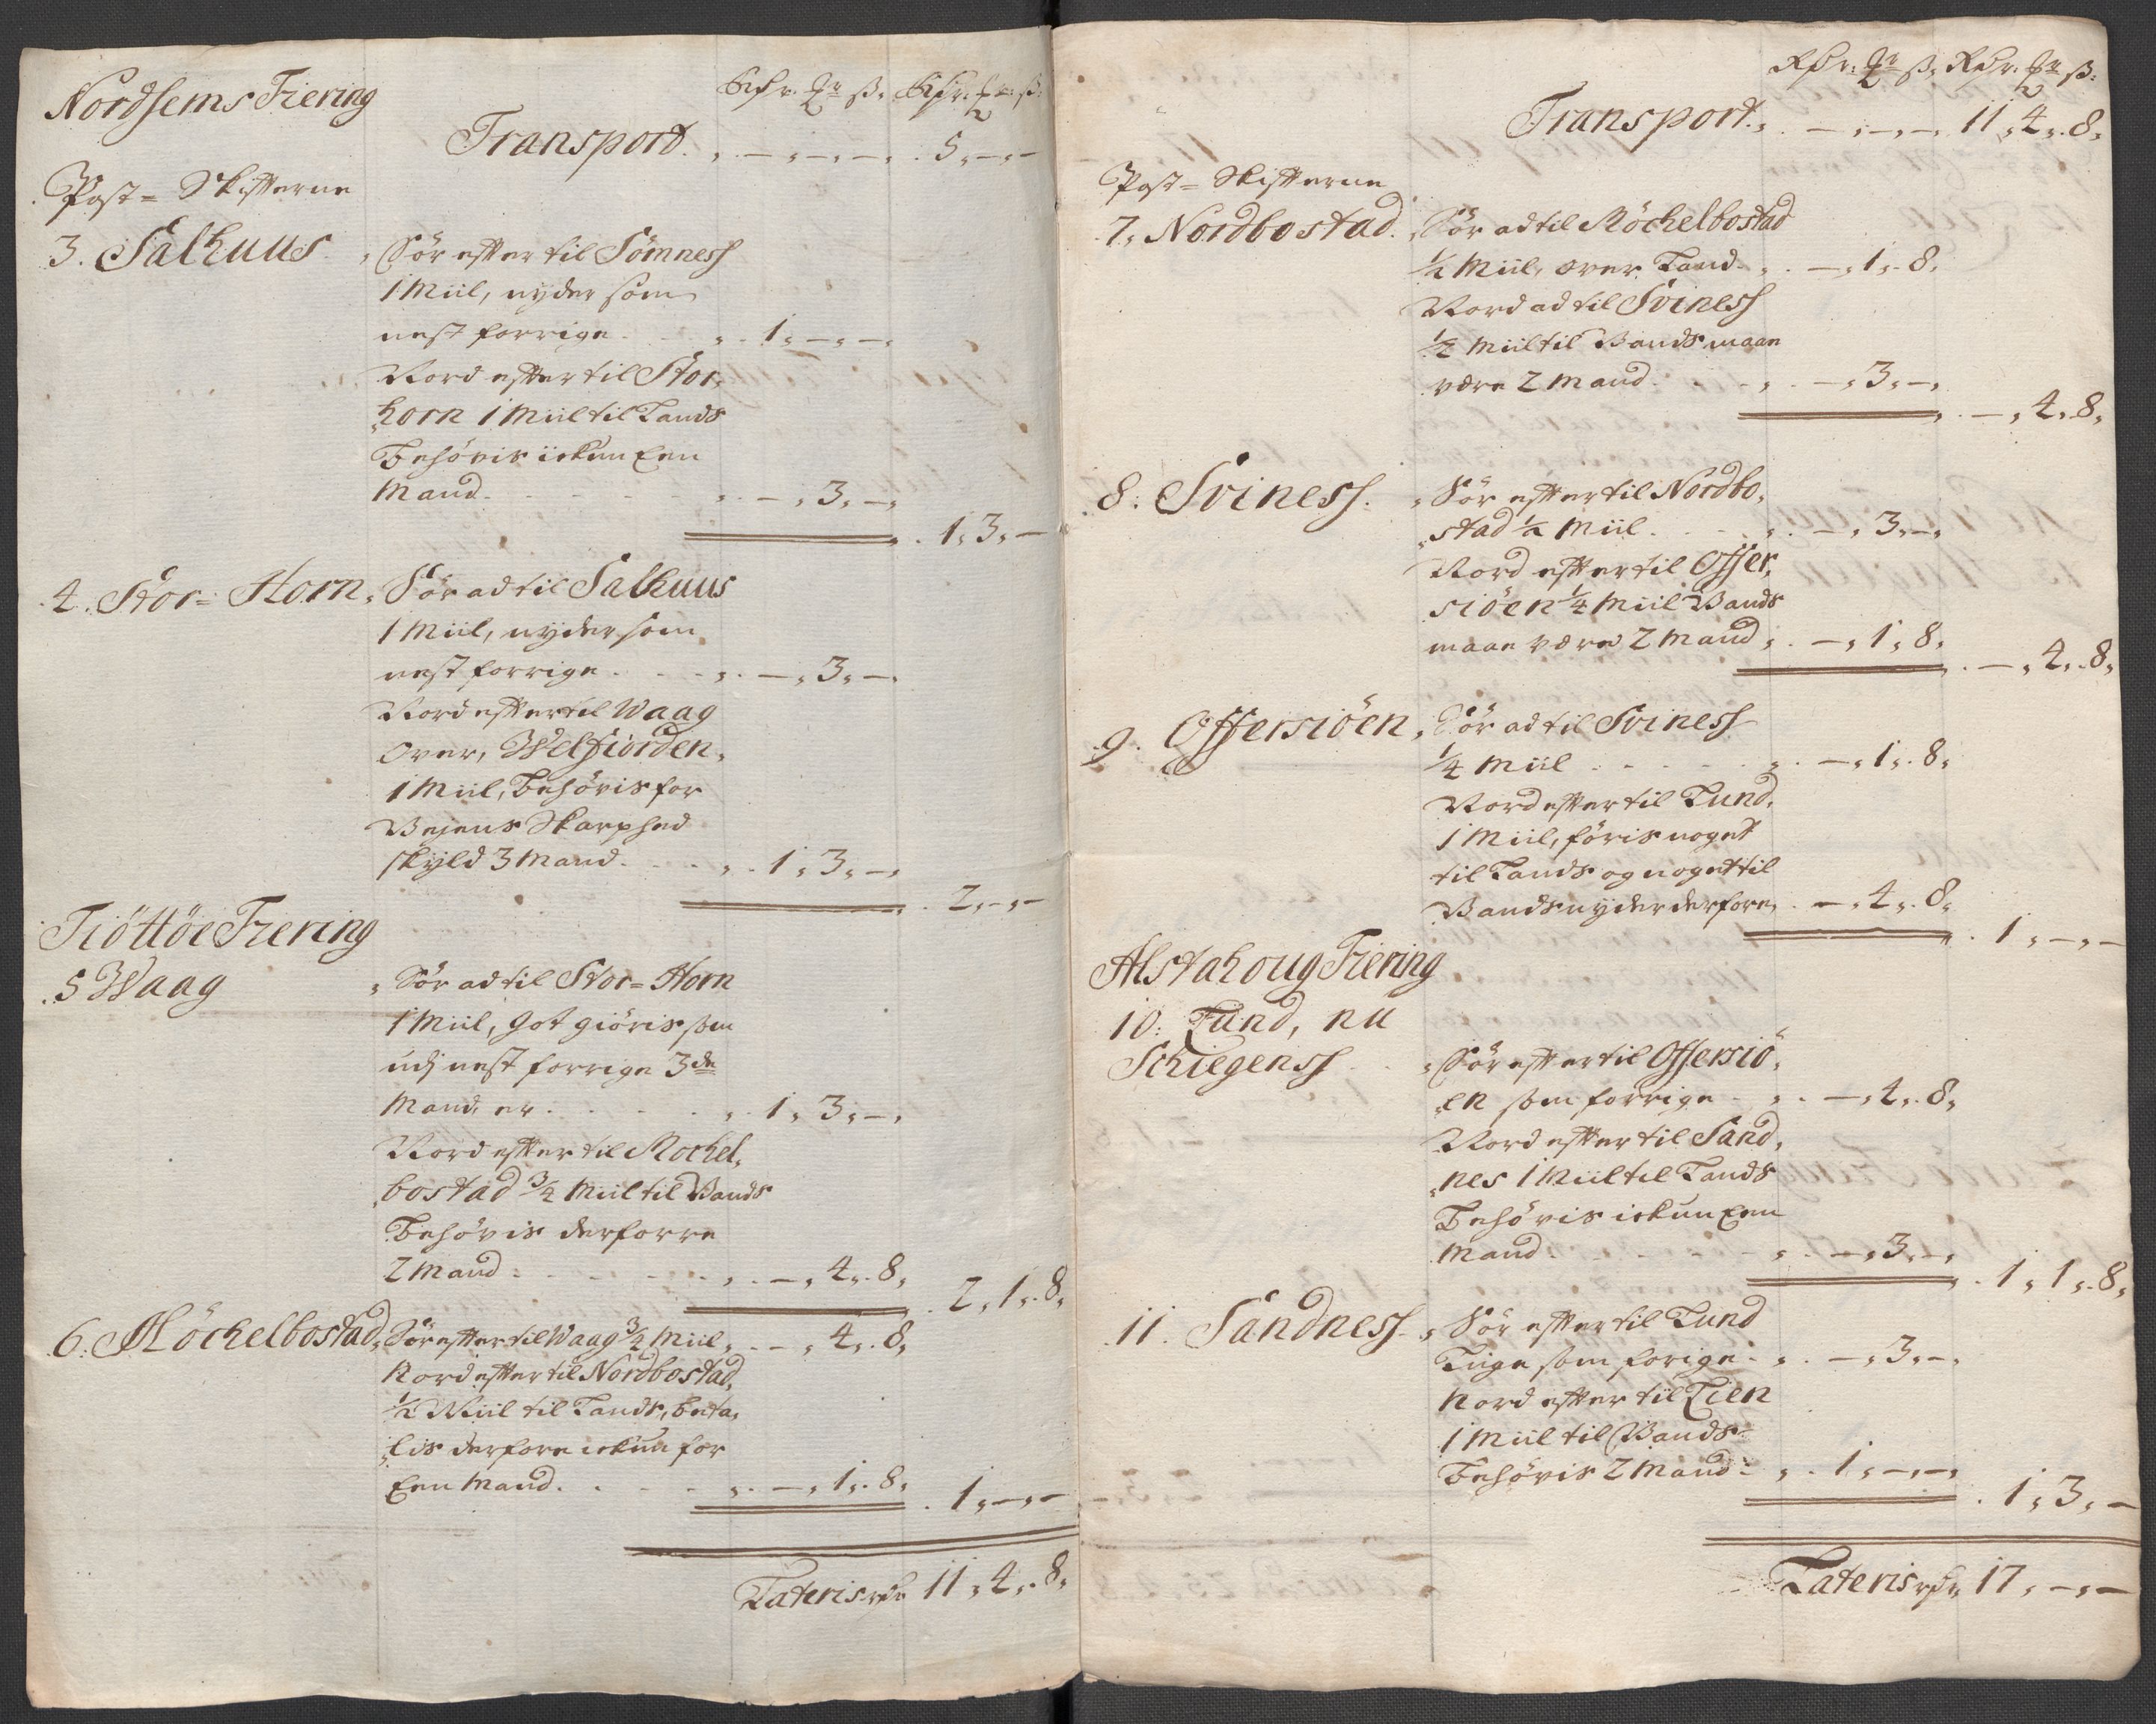 Nordsems Fiering
Rdr. Ør ß. Rdr. Ør ß.
Transport. . — . — . — . 5. — . —
Post= Skifterne
3. Salhuus. Sør effter til Sømness
1 Miil, nyder som
nest forrige . . 1. — . —
Nord effter til Stor,
horn 1 Miil til Lands
behøvis ickun Een
Mand . . — . 3. —
1. 3. —
4. Stor= Horn, Sør ad til Salhuus
1 Miil, nyder som
nest forrige . . — . 3. —
Nord effter til Waag
over, Welfiorden,
1 Miil, behøvis for
Vejens Skarphed
skyld 3 Mand . . 1. 3. —
2. — . —
Tiøttøe Fiering
5 Waag Sør ad til Stor= Horn
1 Miil, got giøris som
udj nest forrige 3de
Mand er . . 1. 3. —
Nord effter til Mochel,
bostad 3/4 Miil til Vands
behøvis derforre
2 Mand . . — . 4. 8.
2. 1. 8.
6. Møchelbostad, Sør effter til Waag 3/4 Miil, . — . 4. 8.
Nord effter til Nordbostad,
1/2 Miil til Lands, beta,
lis derfore ickun for
Een Mand . . — . 1. 8.
1. — . —
Lateris rdr 11. 4. 8.
Rdr. Ør ß. Rdr. Ør ß.
Transport. . — . — . — . 11. 4. 8.
Post= Skifterne
7. Nordbostad. Sør ad til Møchelbostad
1/2 Miil, over Land . . — . 1. 8.
Nord ad til Sviness
1/2 Miil til Vands maae
være 2 Mand . . — . 3. —
— . 4. 8.
8. Sviness. Sør effter til Nordbo,
stad 1/2 Miil . . — . 3. —
Nord effter til Offer,
siøen 1/4 Miil Vands
maae være 2 Mand . . — . 1. 8.
— . 4. 8.
9. Offersiøen, Sør ad til Sviness
1/4 Miil . . — . 1. 8.
Nord effter til Lund,
1 Miil, føris noget
til Lands og noget til
Vands nyder derfore, . — . 4. 8.
1. — . —
Alstahoug Fiering
10. Lund, nu
Schiegenss Sør effter til Offersiø,
en som forrige . . — . 4. 8.
Nord effter til Sand,
nes 1 Miil til Lands
behøvis ickun Een
Mand . . — . 3. —
1. 1. 8.
11. Sandness Sør effter til Lund
Liige som forige . . — . 3. —
Nord effter til Leen
1 Miil til Vands
behøvis 2 Mand . . 1. — . —
1. 3. —
Lateris rdr. 17. — . —